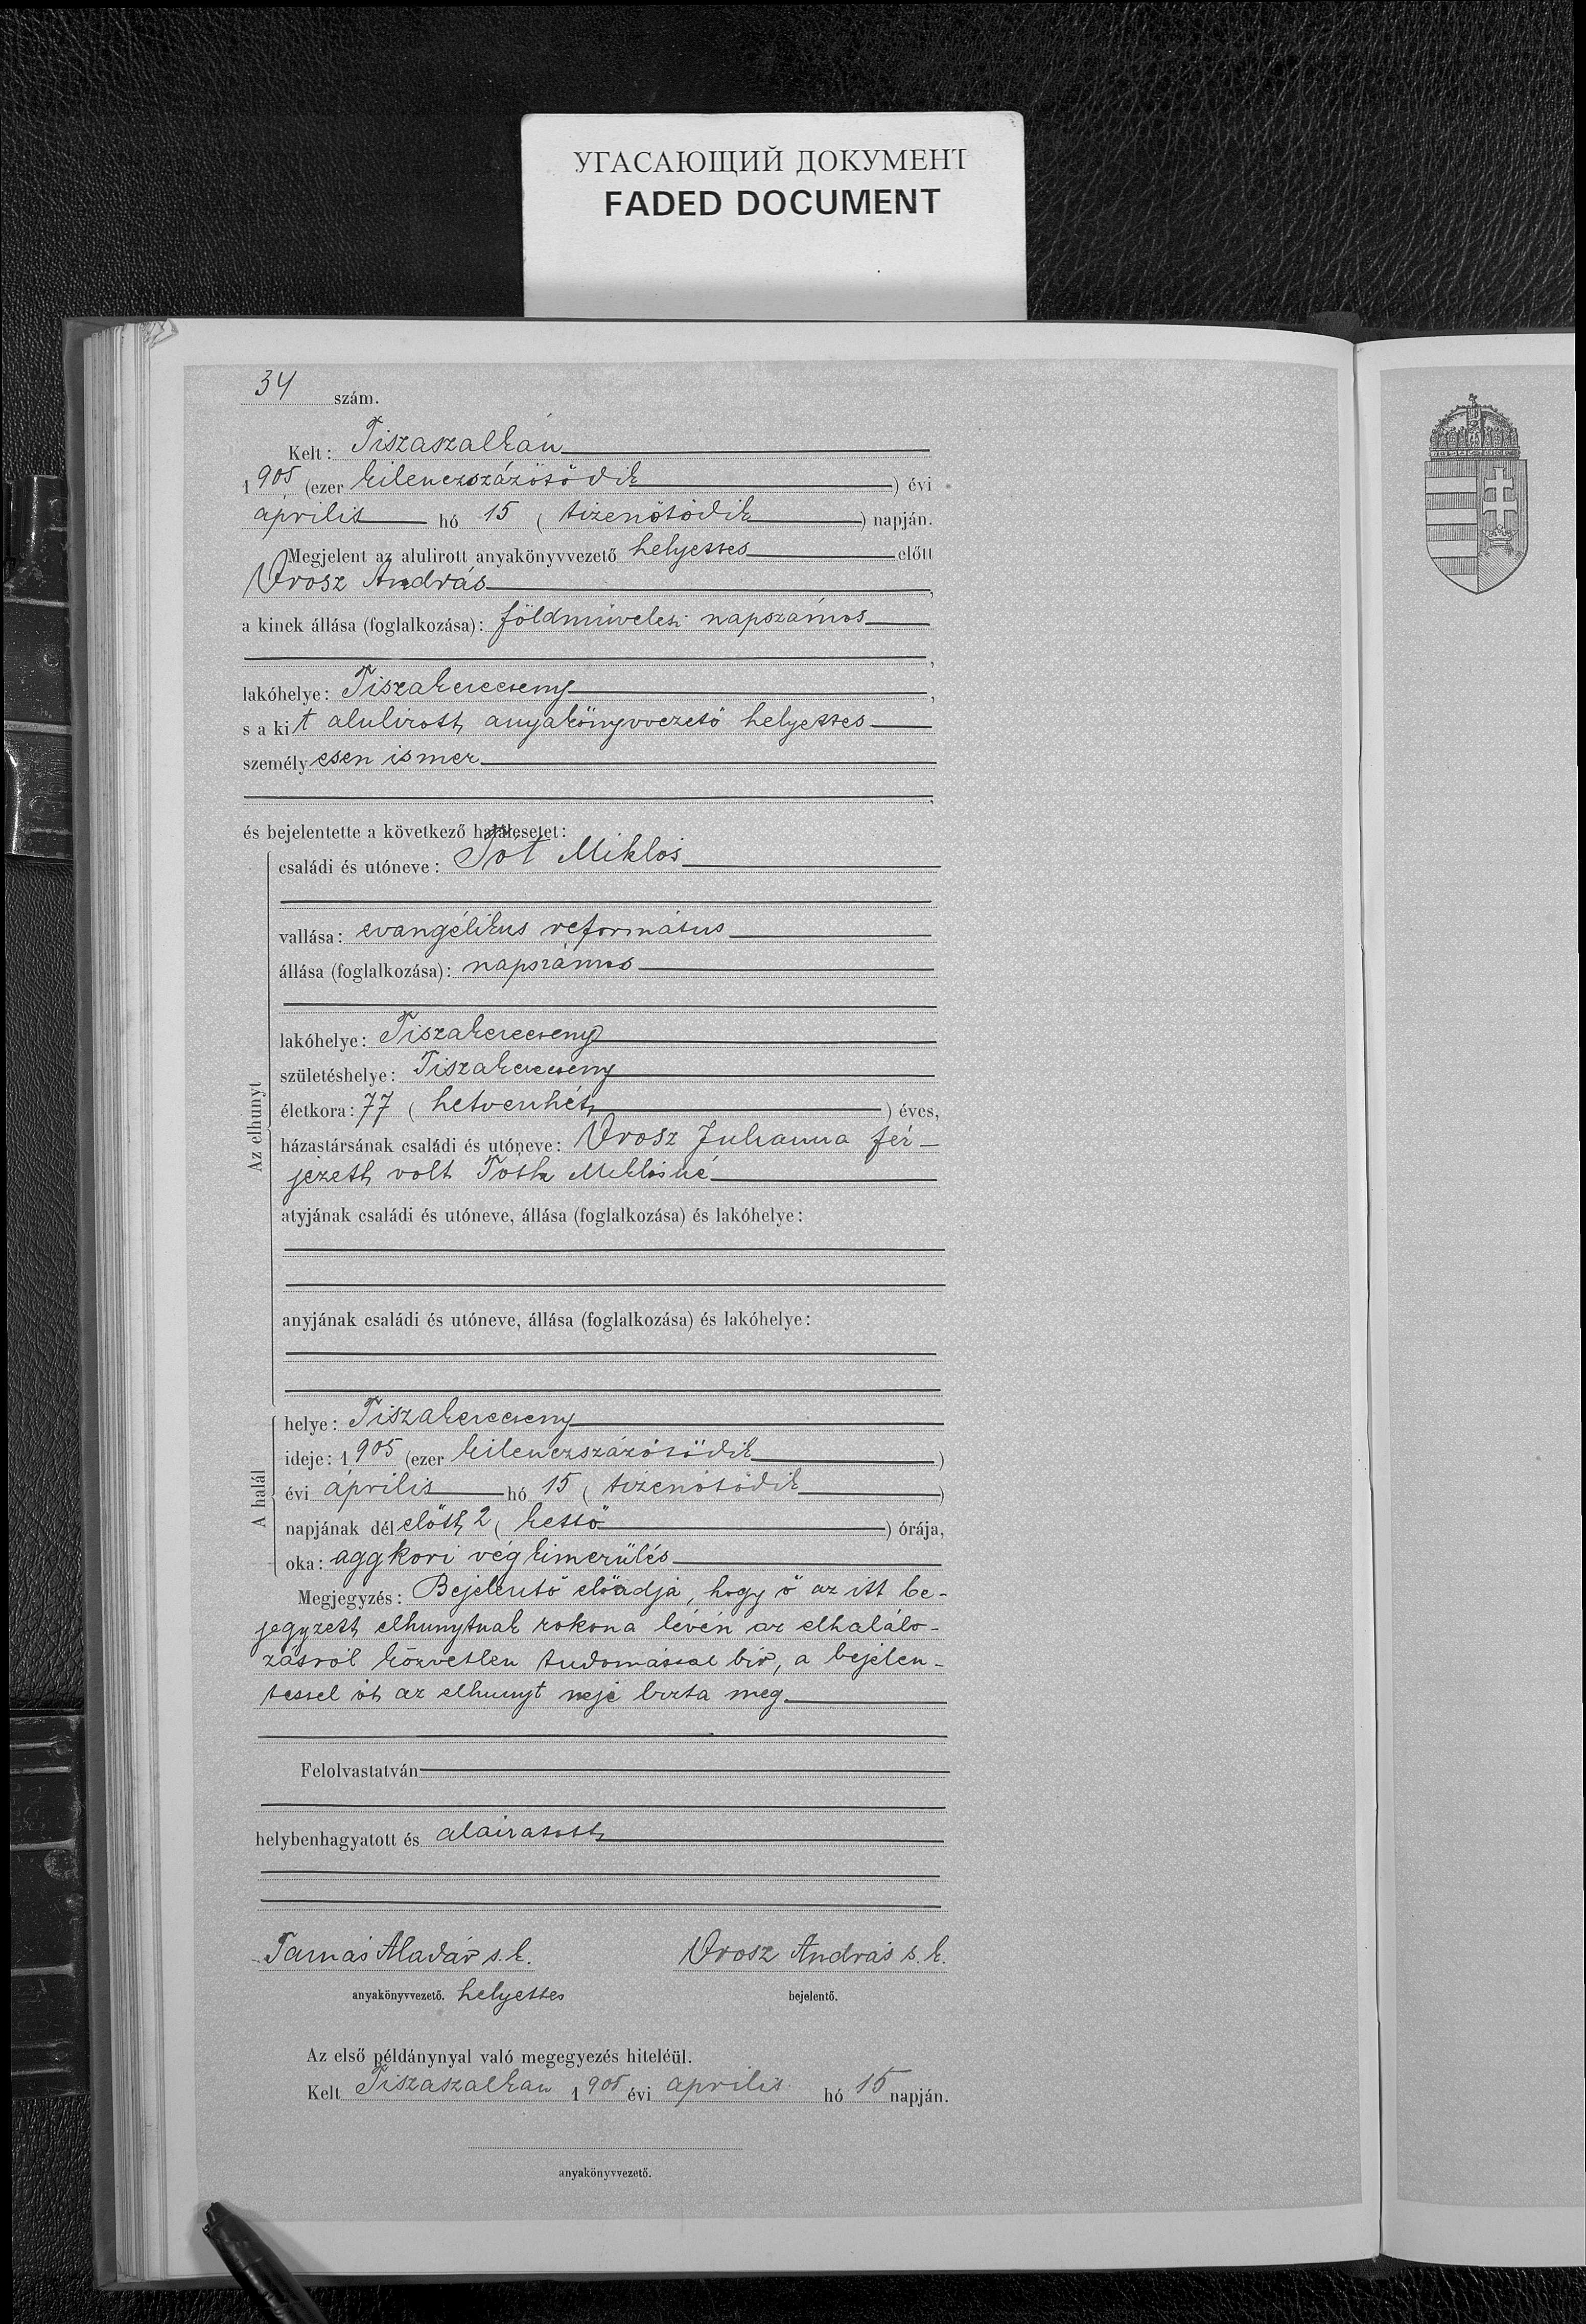 УГАСАЮЩИЙ ДОКУМЕНТ
FADED DOCUMENT
34 szám.
Kelt: Tiszaszalkán
1905 (ezer kilenczszázötödik) évi
április hó 15 (tizenötödik) napján.
Megjelent az alulirott anyakönyvvezető helyettes előtt
Orosz András,
a kinek állása (foglalkozása): földmüvelesi napszámos
,
lakóhelye: Tiszakerecseny,
s a kit alulirott anyakönyvvezető helyettes
személyesen ismer
,
és bejelentette a következő halálesetet:
Az elhunyt
családi és utóneve: Tót Miklos
vallása: evangélikus református
állása (foglalkozása): napszámos
lakóhelye: Tiszakerecseny
születéshelye: Tiszakerecseny
életkora: 77 (hetvenhét) éves,
házastársának családi és utóneve: Orosz Julianna fér-
jezett volt Tóth Miklósné
atyjának családi és utóneve, állása (foglalkozása) és lakóhelye:
anyjának családi és utóneve, állása (foglalkozása) és lakóhelye:
A halál
helye: Tiszakerecseny
ideje: 1905 (ezer kilenczszázötödik)
évi április hó 15 (tizenötödik)
napjának délelőtt 2 (kettő) órája,
oka: aggkori végkimerülés
Megjegyzés: Bejelentő előadja, hogy ő az itt be-
jegyzett elhunytnak rokona lévén az elhalálo-
zásról közvetlen tudomással bir, a bejelen-
tessel őt az elhunyt neje bizta meg
Felolvastatván
helybenhagyatott és aláiratott
Tamás Aladár s. k. Orosz András s. k.
anyakönyvvezető. helyettes bejelentő.
Az első példánynyal való megegyezés hiteléül.
Kelt Tiszaszalkán 1905 évi április hó 15 napján.
anyakönyvvezető.